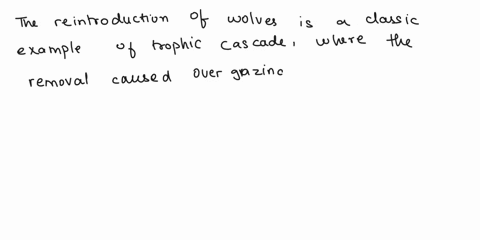 The reintroduction of wolves is a classic
example of trophic cascade, where the
removal caused over grazing